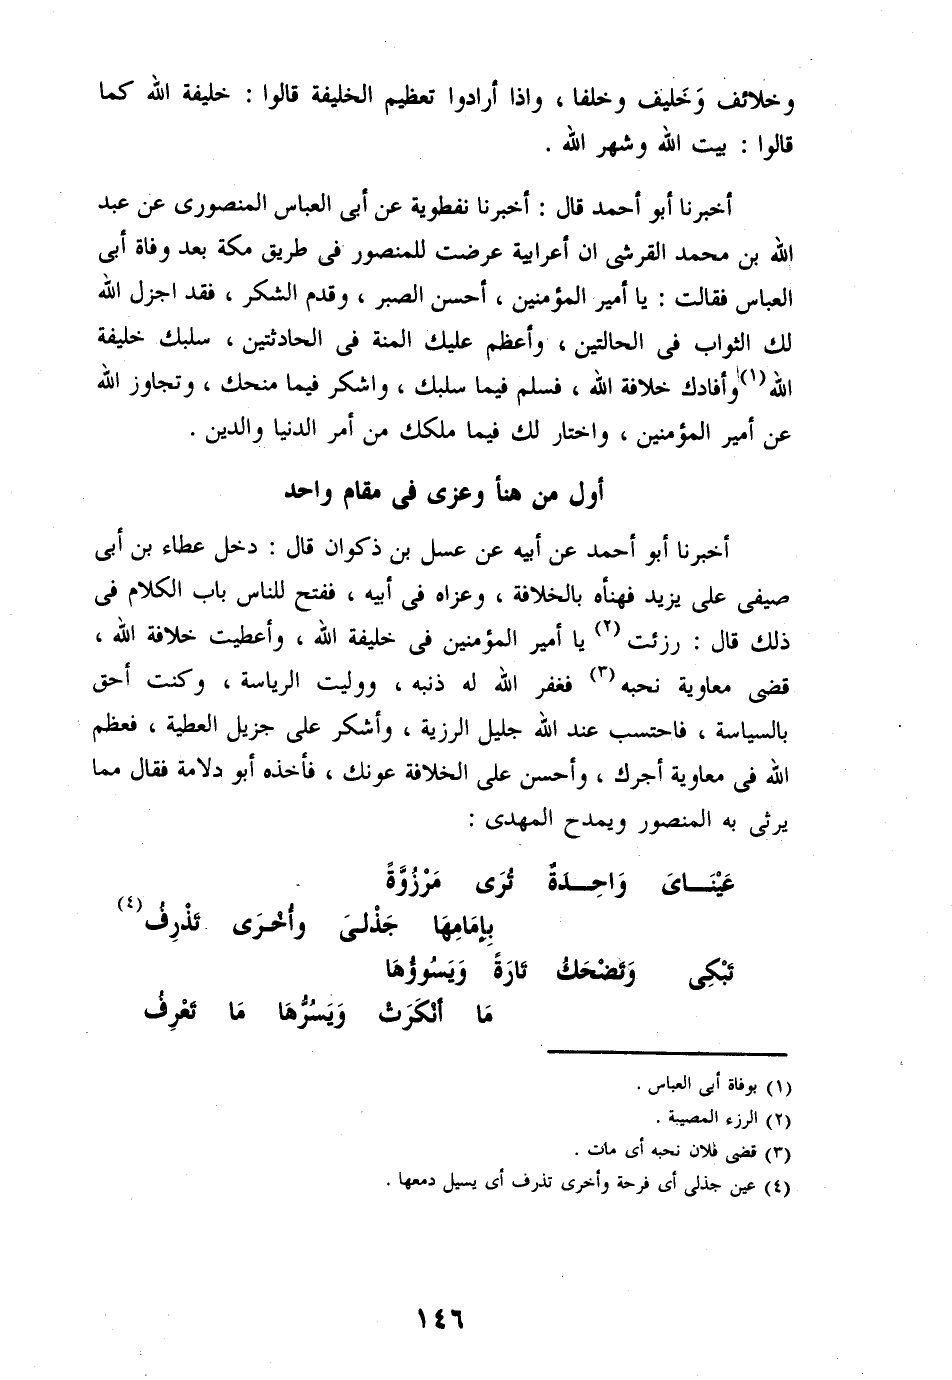 وخلائف وَخَليف وخلفا ، واذا أرادوا تعظيم الخليفة قالوا : خليفة الله كما
قالوا : بيت الله وشهر الله .
أخبرنا أبو أحمد قال : أخبرنا نفطوية عن أبى العباس المنصورى عن عبد
الله بن محمد القرشى ان أعرابية عرضت للمنصور فى طريق مكة بعد وفاة أبى
العباس فقالت : يا أمير المؤمنين ، أحسن الصبر ، وقدم الشكر ، فقد اجزل الله
لك الثواب فى الحالتين ، وأعظم عليك المنة فى الحادثتين ، سلبك خليفة
الله (١) وأفادك خلافة الله ، فسلم فيما سلبك ، واشكر فيما منحك ، وتجاوز الله
عن أمير المؤمنين ، واختار لك فيما ملكك من أمر الدنيا والدين .
أول من هنأ وعزى فى مقام واحد
أخبرنا أبو أحمد عن أبيه عن عسل بن ذكوان قال : دخل عطاء بن أبى
صيفى على يزيد فهنأه بالخلافة ، وعزاه فى أبيه ، ففتح للناس باب الكلام فى
ذلك قال : رزئت (٢) يا أمير المؤمنين فى خليفة الله ، وأعطيت خلافة الله ،
قضى معاوية نحبه (٣) فغفر الله له ذنبه ، ووليت الرياسة ، وكنت أحق
بالسياسة ، فاحتسب عند الله جليل الرزية ، وأشكر على جزيل العطية ، فعظم
الله فى معاوية أجرك ، وأحسن على الخلافة عونك ، فأخذه أبو دلامة فقال مما
يرثى به المنصور ويمدح المهدى :
عَيْنَـــاىَ وَاحِـــدَةٌ تُرَى مَرْزُوَّةً
بِإمَامِهَا جَذْلـىَ وأُخْـرَى تَذْرِفُ (٤)
تَبْكِى وَتَضْحَكُ تَارَةً وَيَسُوؤُهَا
مَا أنْكَرَتْ وَيَسُرُّهَا مَا تَعْرِفُ
(١) بوفاة أبى العباس .
(٢) الرزء المصيبة .
(٣) قضى فلان نحبه أى مات .
(٤) عين جذلى أى فرحة وأخرى تذرف أى يسيل دمعها .
١٤٦